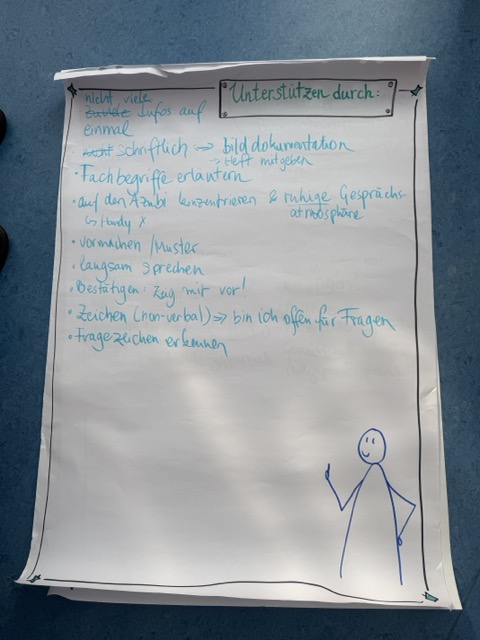 Unterstützen durch:
nicht viele
zuviele Infos auf
einmal
nicht schriftlich => bilddokumentation
-> Heft mitgeben
• Fachbegriffe erläutern
• auf den Azubi konzentrieren & ruhige Gesprächs-
atmosphäre
↳ Handy x
• vormachen / Muster
• langsam sprechen
• Bestätigen: mit vor!
• Zeichen (non-verbal) => bin ich offen für Fragen
• Fragezeichen erkennen